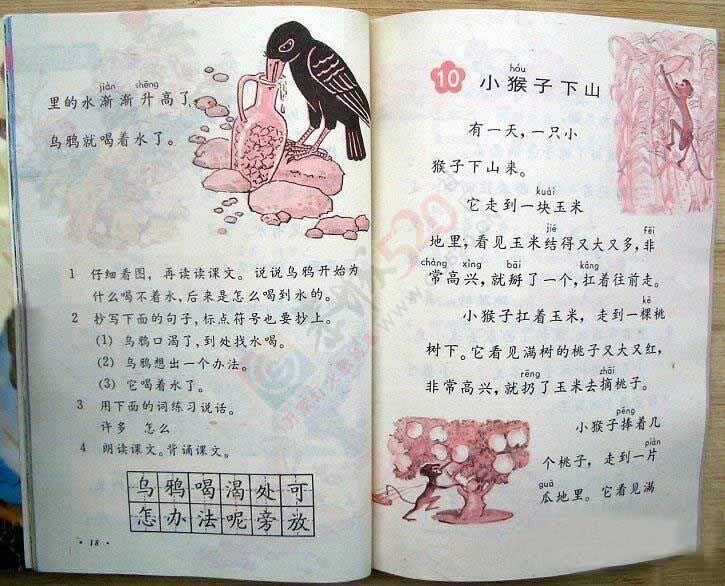 jiàn shēng
里的水渐渐升高了,
乌鸦就喝着水了。
1 仔细看图，再读读课文。说说乌鸦开始为
什么喝不着水,后来是怎么喝到水的。
2 抄写下面的句子,标点符号也要抄上。
(1) 乌鸦口渴了,到处找水喝。
(2) 乌鸦想出一个办法。
(3) 它喝着水了。
3 用下面的词练习说话。
许多 怎么
4 朗读课文。背诵课文。
乌鸦喝渴处可
怎办法呢旁放
· 18 ·
hóu
10 小猴子下山
有一天,一只小
猴子下山来。
kuài
它走到一块玉米
jiē fēi
地里,看见玉米结得又大又多,非
cháng xìng bāi káng
常高兴,就掰了一个,扛着往前走。
kē
小猴子扛着玉米，走到一棵桃
树下。它看见满树的桃子又大又红,
rēng zhāi
非常高兴,就扔了玉米去摘桃子。
pěng
小猴子捧着几
piàn
个桃子，走到一片
guā
瓜地里。它看见满